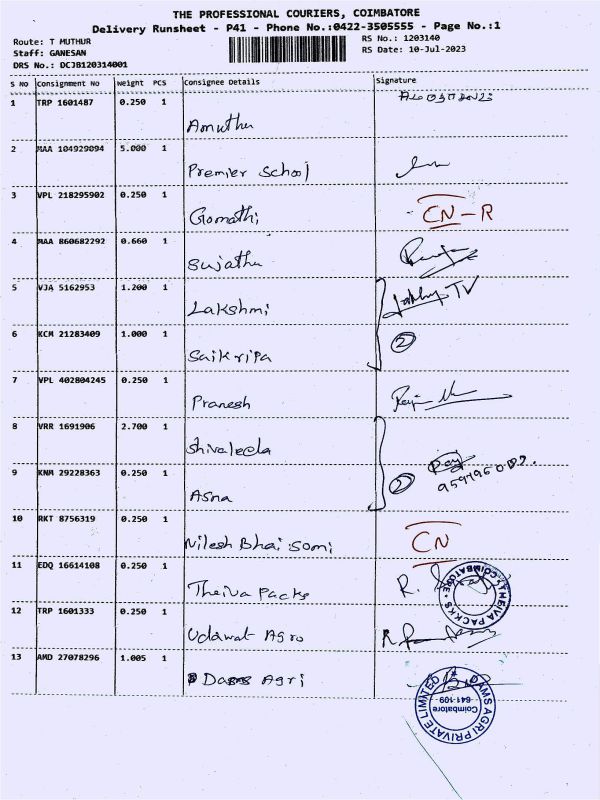 THE PROFESSIONAL COURIERS, COIMBATORE
Delivery Runsheet - P41 - Phone No.:0422-3505555 - Page No.:1
Route: T MUTHUR
RS No.: 1203140
Staff: GANESAN
RS Date: 10-Jul-2023
DRS No.: DCJB120314001
S No Consignment No Weight PCS Consignee Details Signature
1 TRP 1601487 0.250 1
Amutha
2 MAA 104929094 5.000 1
Premier School
3 VPL 218295902 0.250 1
Gomathi CN-R
4 MAA 860682292 0.660 1
Sujatha
5 VJA 5162953 1.200 1
Lakshmi TV
6 KCM 21283409 1.000 1 2
Saikripa
7 VPL 402804245 0.250 1
Pranesh
8 VRR 1691906 2.700 1
Shivaleela
9 KNM 29228363 0.250 1 2
Asna
10 RKT 8756319 0.250 1
Nilesh Bhai Somi CN
11 EDQ 16614108 0.250 1
Theiva Packs R.
THEIVA PACKKS COIMBATORE
12 TRP 1601333 0.250 1
Udawat Agro
13 AMD 27078296 1.005 1
Dams Agri
DAMS AGRI PRIVATE LIMITED
Coimbatore
641-109